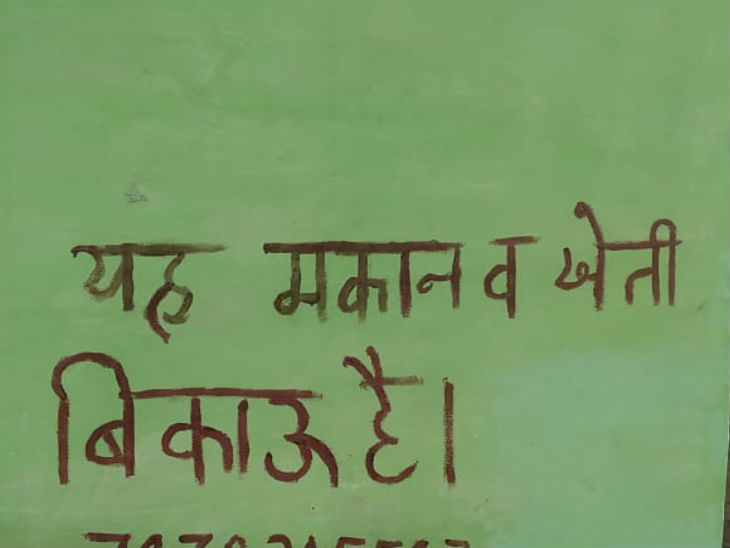 यह मकान व खेती
बिकाऊ है।